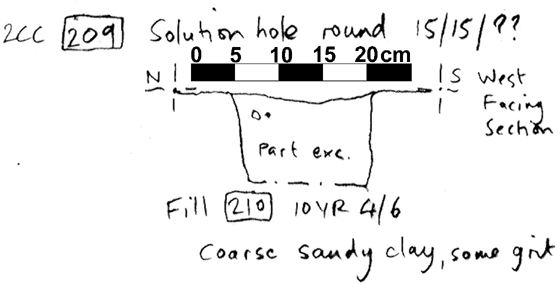 2CC 209 Solution hole round 15/15/??
0 5 10 15 20cm
N S West
Facing
Section
Part exc.
Fill 210 10YR 4/6
Coarse sandy clay, some grit